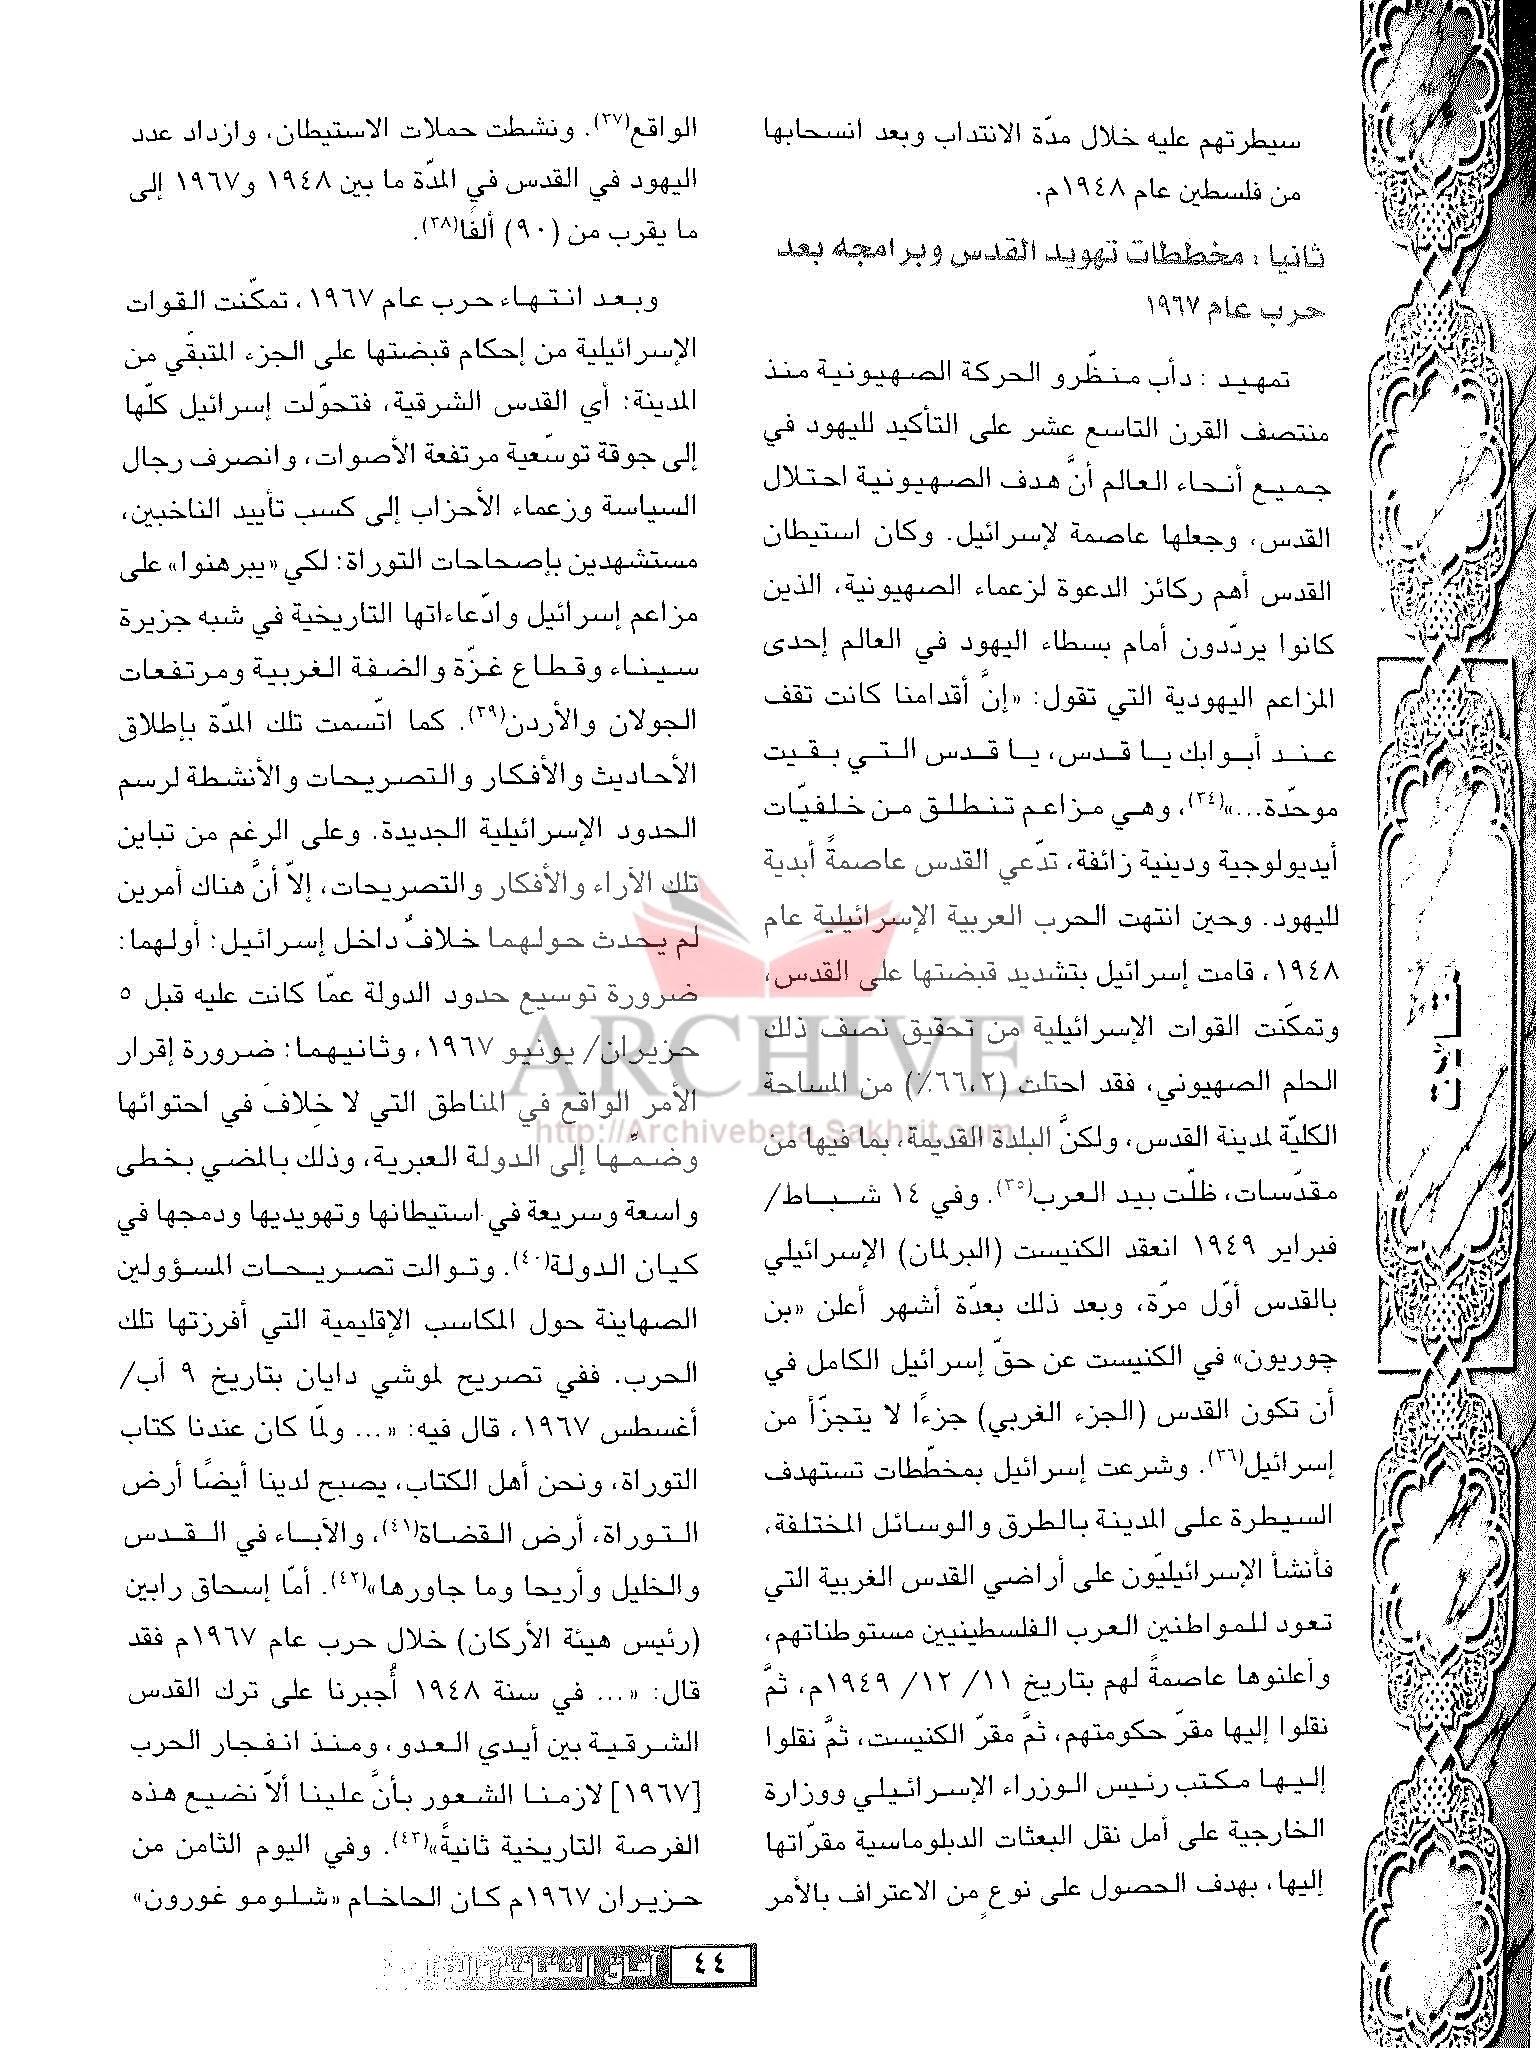 سيطرتهم عليه خلال مدّة الانتداب وبعد انسحابها
من فلسطين عام ١٩٤٨م.
ثانيا : مخططات تهويد القدس وبرامجه بعد
حرب عام ١٩٦٧
تمهيد : دأب منظّرو الحركة الصهيونية منذ
منتصف القرن التاسع عشر على التأكيد لليهود في
جميع أنحاء العالم أنَّ هدف الصهيونية احتلال
القدس، وجعلها عاصمة لإسرائيل. وكان استيطان
القدس أهم ركائز الدعوة لزعماء الصهيونية، الذين
كانوا يردّدون أمام بسطاء اليهود في العالم إحدى
المزاعم اليهودية التي تقول: «إنَّ أقدامنا كانت تقف
عند أبوابك يا قدس، يا قدس التي بقيت
موحّدة...»(٣٤)، وهي مزاعم تنطلق من خلفيّات
أيديولوجية ودينية زائفة، تدّعي القدس عاصمةً أبدية
لليهود. وحين انتهت الحرب العربية الإسرائيلية عام
١٩٤٨، قامت إسرائيل بتشديد قبضتها على القدس،
وتمكّنت القوات الإسرائيلية من تحقيق نصف ذلك
الحلم الصهيوني، فقد احتلت (٦٦،٢٪) من المساحة
الكليّة لمدينة القدس، ولكنَّ البلدة القديمة، بما فيها من
مقدّسات، ظلّت بيد العرب(٣٥). وفي ١٤ شباط/
فبراير ١٩٤٩ انعقد الكنيست (البرلمان) الإسرائيلي
بالقدس أوّل مرّة، وبعد ذلك بعدّة أشهر أعلن «بن
جوريون» في الكنيست عن حقّ إسرائيل الكامل في
أن تكون القدس (الجزء الغربي) جزءًا لا يتجزّأ من
إسرائيل(٣٦). وشرعت إسرائيل بمخطّطات تستهدف
السيطرة على المدينة بالطرق والوسائل المختلفة،
فأنشأ الإسرائيليّون على أراضي القدس الغربية التي
تعود للمواطنين العرب الفلسطينيين مستوطناتهم،
وأعلنوها عاصمةً لهم بتاريخ ١١/ ١٢/ ١٩٤٩م، ثمَّ
نقلوا إليها مقرّ حكومتهم، ثمَّ مقرّ الكنيست، ثمَّ نقلوا
إليها مكتب رئيس الوزراء الإسرائيلي ووزارة
الخارجية على أمل نقل البعثات الدبلوماسية مقرّاتها
إليها، بهدف الحصول على نوعٍ من الاعتراف بالأمر
الواقع(٣٧). ونشطت حملات الاستيطان، وازداد عدد
اليهود في القدس في المدّة ما بين ١٩٤٨ و١٩٦٧ إلى
ما يقرب من (٩٠) ألفًا(٣٨).
وبعد انتهاء حرب عام ١٩٦٧، تمكّنت القوات
الإسرائيلية من إحكام قبضتها على الجزء المتبقّي من
المدينة: أي القدس الشرقية، فتحوّلت إسرائيل كلّها
إلى جوقة توسّعية مرتفعة الأصوات، وانصرف رجال
السياسة وزعماء الأحزاب إلى كسب تأييد الناخبين،
مستشهدين بإصحاحات التوراة: لكي «يبرهنوا» على
مزاعم إسرائيل وادّعاءاتها التاريخية في شبه جزيرة
سيناء وقطاع غزّة والضفة الغربية ومرتفعات
الجولان والأردن(٣٩). كما اتّسمت تلك المدّة بإطلاق
الأحاديث والأفكار والتصريحات والأنشطة لرسم
الحدود الإسرائيلية الجديدة. وعلى الرغم من تباين
تلك الآراء والأفكار والتصريحات، إلاّ أنَّ هناك أمرين
لم يحدث حولهما خلافٌ داخل إسرائيل: أولهما:
ضرورة توسيع حدود الدولة عمّا كانت عليه قبل ٥
حزيران/ يونيو ١٩٦٧، وثانيهما: ضرورة إقرار
الأمر الواقع في المناطق التي لا خِلافَ في احتوائها
وضمّها إلى الدولة العبرية، وذلك بالمضي بخطى
واسعة وسريعة في استيطانها وتهويديها ودمجها في
كيان الدولة(٤٠). وتوالت تصريحات المسؤولين
الصهاينة حول المكاسب الإقليمية التي أفرزتها تلك
الحرب. ففي تصريح لموشي دايان بتاريخ ٩ آب/
أغسطس ١٩٦٧، قال فيه: «... ولمّا كان عندنا كتاب
التوراة، ونحن أهل الكتاب، يصبح لدينا أيضًا أرض
التوراة، أرض القضاة(٤١)، والآباء في القدس
والخليل وأريحا وما جاورها»(٤٢). أمّا إسحاق رابين
(رئيس هيئة الأركان) خلال حرب عام ١٩٦٧م فقد
قال: «... في سنة ١٩٤٨ أُجبرنا على ترك القدس
الشرقية بين أيدي العدو، ومنذ انفجار الحرب
[١٩٦٧] لازمنا الشعور بأنَّ علينا ألاّ نضيع هذه
الفرصة التاريخية ثانيةً»(٤٣). وفي اليوم الثامن من
حزيران ١٩٦٧م كان الحاخام «شلومو غورون»
مقالات
ARCHIVE
http://Archivebeta.Sakhrit.com
٤٤
آفاق الثقافة